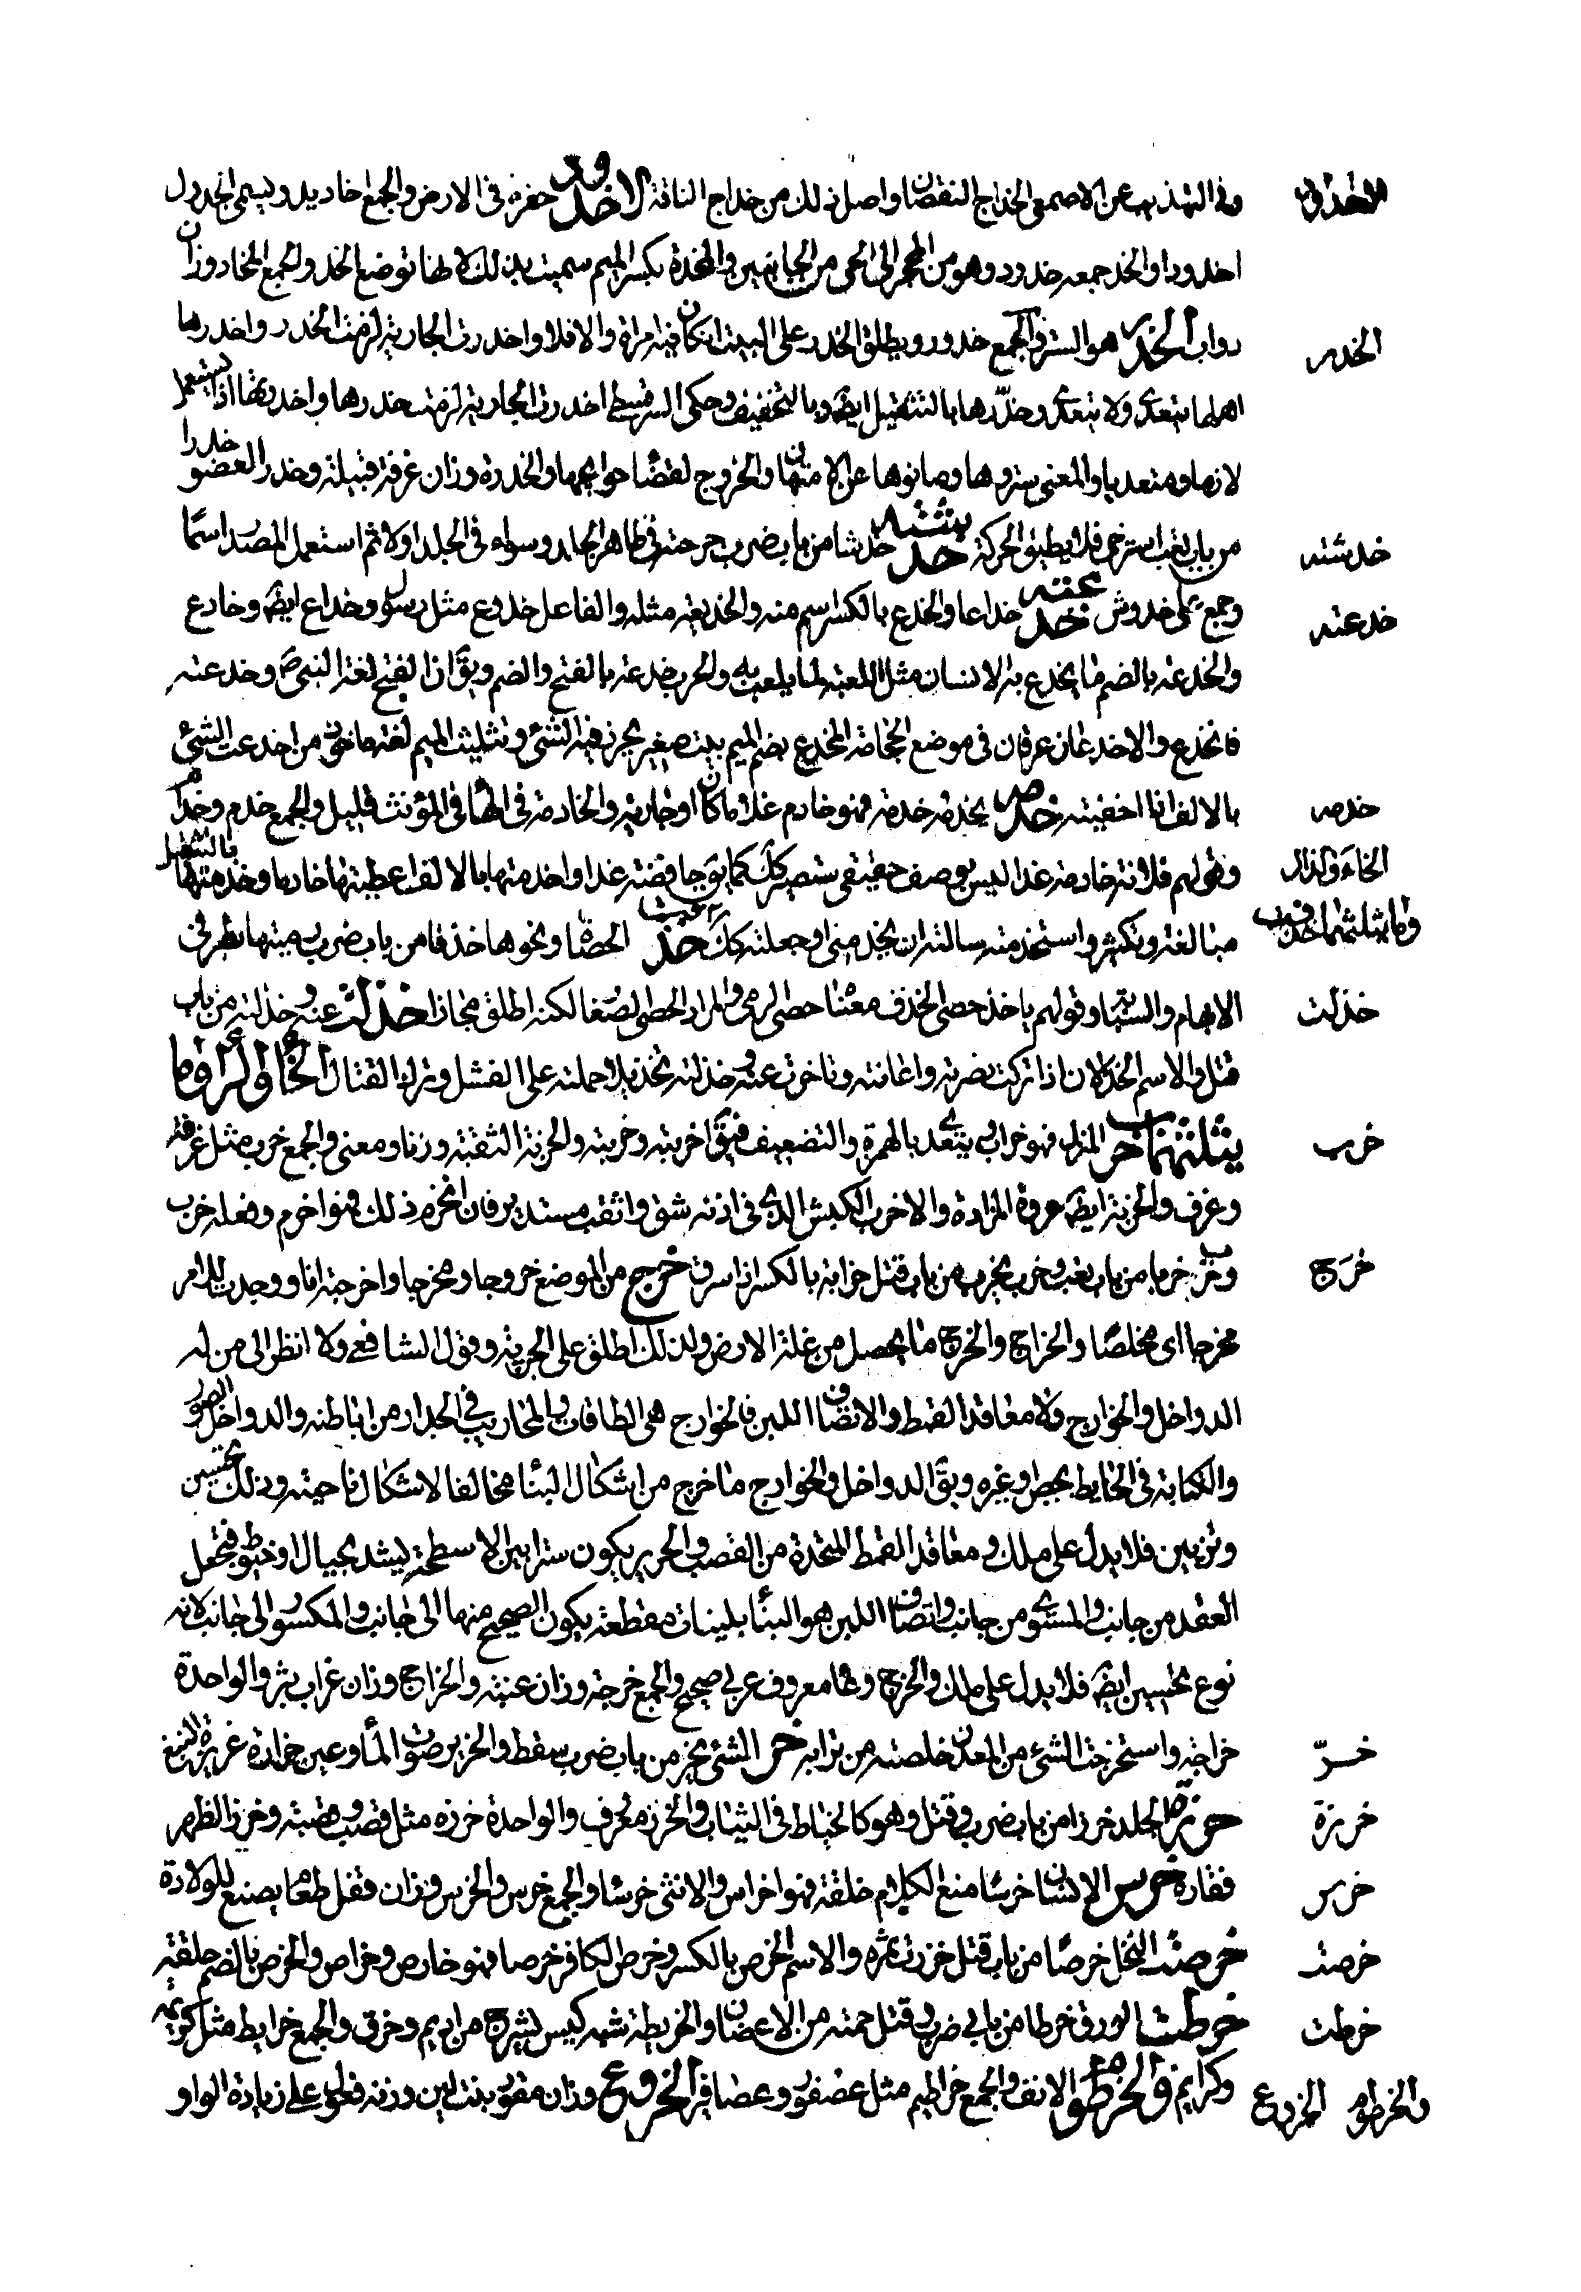 الاخدود
وفي التهذيب عن الاصمعي الخداج النقصان واصل ذلك من خداج الناقة الاخدود حفرة في الارض والجمع اخاديد ويسمى الجدول
اخدودا والخد جمعه خدود وهو من المحجر الى اللحى من الجانبين والمخدة بكسر الميم سميت بذلك لانها توضع الخد والجمع المخاد وزان
الخدر
دواب الخدر هو الستر والجمع خدور ويطلق الخدر على البيت ان كان فيه امراة والا فلا واخدرت الجارية لزمت الخدر واخدرها
اهلها يتعدى ولا يتعدى وخدّرها بالتثقيل ايضا وبالتخفيف وحكى السرقسطي اخدرت الجارية لزمت خدرها واخدرتها اذا يستعمل
لازما ومتعديا والمعنى ستروها وصانوها عن الامتهان والخروج لقضا حوائجها والخدرة وزان غرفة قبيلة وخدر العضو خدرا
خدشته
من باب تعب استرخى فلا يطيق الحركة خدشته خدشا من باب ضرب جرحته في ظاهر الجلد وسواء دمى الجلد اولا ثم استعمل المصدر اسما
خدعته
وجمع على خدوش خدعته خداعا والخدع بالكسر اسم منه والخديعة مثله والفاعل خدوع مثل رسول وخداع ايضا وخادع
والخدعة بالضم ما يخدع به الانسان مثل اللعبة لما يلعب به والحرب خدعة بالفتح والضم ويقال ان الفتح لغة النبي ص وخدعته
فانخدع والاخدعان عرقان في موضع الحجامة المخدع بضم الميم بيت صغير يحرز فيه الشئ وتثليث الميم لغة ماخوذ من اخدعت الشئ
خدمه
بالالف اذا اخفيته خدمه يخدمه خدمة فهو خادم غلاما كان او جارية والخادمة في الها في المؤنث قليل والجمع خدم وخدام
الخاء والذال
وقولهم فلانة خادمة غدا ليس بوصف حقيقي ستصير كك كما يق حايضة غدا واخدمتها بالالف اعطيتها خادما وخدمتها بالتثقيل
وما يثلثهما خذفت
مبالغة وتكثير واستخدمته سالته ان يخدمني او جعلته كك خذفت الحصاة ونحوها خذفا من باب ضرب رميتها بطرفي
خذلت
الابهام والسبابة وقولهم ياخذ حصى الخذف معناه حصى الرمي والمراد الحصى الصغار لكنه اطلق مجازا خذلته عنه وخذلته من باب
قتل والاسم الخذلان اذا تركت نصرته واعانته وتاخرت عنه وخذلته تخذيلا حملته على الفشل وترك القتال الخاء والراء وما
خرب
يثلثهما خرب المنزل فهو خراب يتعدى بالهمزة والتضعيف فيق اخربته وخربته والخربة الثقبة وزنا ومعنى والجمع خرب مثل غرفة
وغرف والخربة ايضا عروة المزادة والاخرب الكبش الذي في اذنه شق او ثقب مستدير فان انخرم ذلك فهو اخرم وفعله خرب
خرج
وخرب خربا من باب تعب وخرب يخرب من باب قتل خرابة بالكسر اذا سرق خرج من الموضع خروجا ومخرجا واخرجته انا ووجدت للامر
مخرجا اى مخلصا والخراج والخرج ما يحصل من غلة الارض ولذلك اطلق على الجزية وقول الشافعي ولا انظر الى من له
الدواخل والخوارج ولا معاقد القمط والانصاف اللبن فالخوارج هي الطاقات والمحاريب في الجدار من باطنه والدواخل الصور
والكتابة في الحايط بجص او غيره ويق الدواخل والخوارج ما خرج من اشكال البنا مخالفا لاشكال ناحيته وذلك تحسين
وتزيين فلا يدل على ملك ومعاقد القمط المتخذة من القصب والحرير يكون سترا بين الاسطحة يشد بحبال او خيوط فتجعل
العقد من جانب والمستوى من جانب وانصاف اللبن هو البنا بلبنات مقطعة يكون الصحيح منها الى جانب والمكسور الى جانب لانه
نوع تحسين ايضا فلا يدل على ملك والخرج وعا معروف عربي صحيح والجمع خرجة وزان عنبة والخراج وزان غراب بثر والواحدة
خرّ
خراجة واستخرجت الشئ من المعدن خلصته من ترابه خر الشئ يخر من باب ضرب سقط والخرير صوت الما وعين خرارة غزيرة النبع
خرزة
خرزت الجلد خرزا من باب ضرب وقتل وهو كالخياط في الثياب والخرز معروف والواحدة خرزة مثل قصب وقصبة وخرز الظهر
خرس
فقاره خرس الانسان خرسا منع الكلام خلقة فهو اخرس والانثى خرسا والجمع خرس والخرس وزان قفل طعام يصنع للولادة
خرصت
خرصت النخل خرصا من باب قتل حزرت ثمره والاسم الخرص بالكسر وخرص الكافر خرصا فهو خارص وخراص والخرص بالضم حلقة
خرطت
خرطت الورق خرطا من بابي ضرب وقتل حتته من الاغصان والخريطة شبه كيس يشرج من اديم وخرق والجمع خرايط مثل كريمة
والخرطوم الخروع
وكرايم والخرطوم الانف والجمع خراطيم مثل عصفور وعصافير الخروع وزان مقود نبت لين وزنه فعول على زيادة الواو